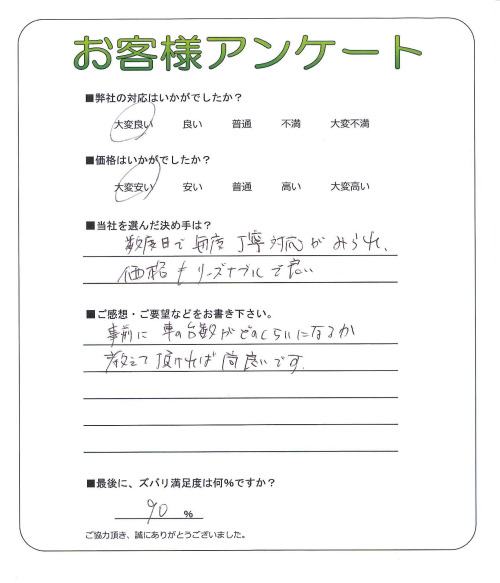 お客様アンケート
■弊社の対応はいかがでしたか？
大変良い 良い 普通 不満 大変不満
■価格はいかがでしたか？
大変安い 安い 普通 高い 大変高い
■当社を選んだ決め手は？
数度目で毎度丁寧対応がみられ、
価格もリーズナブルで良い
■ご感想・ご要望などをお書き下さい。
事前に車の台数がどのくらいになるか
教えて頂ければ尚良いです。
■最後に、ズバリ満足度は何%ですか？
90 %
ご協力頂き、誠にありがとうございました。